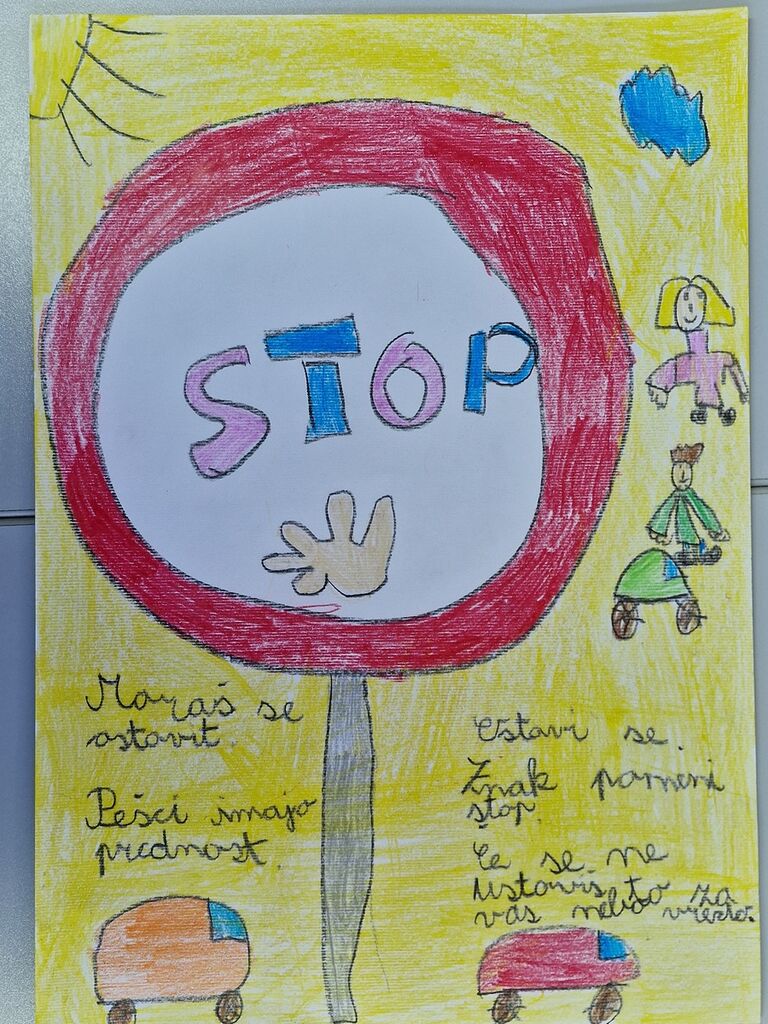 STOP
Moraš se
ostavit.
Pešci imajo
prednost.
Ustavi se.
Znak pomeni
stop.
Če se ne
ustaviš to za
vas nebo